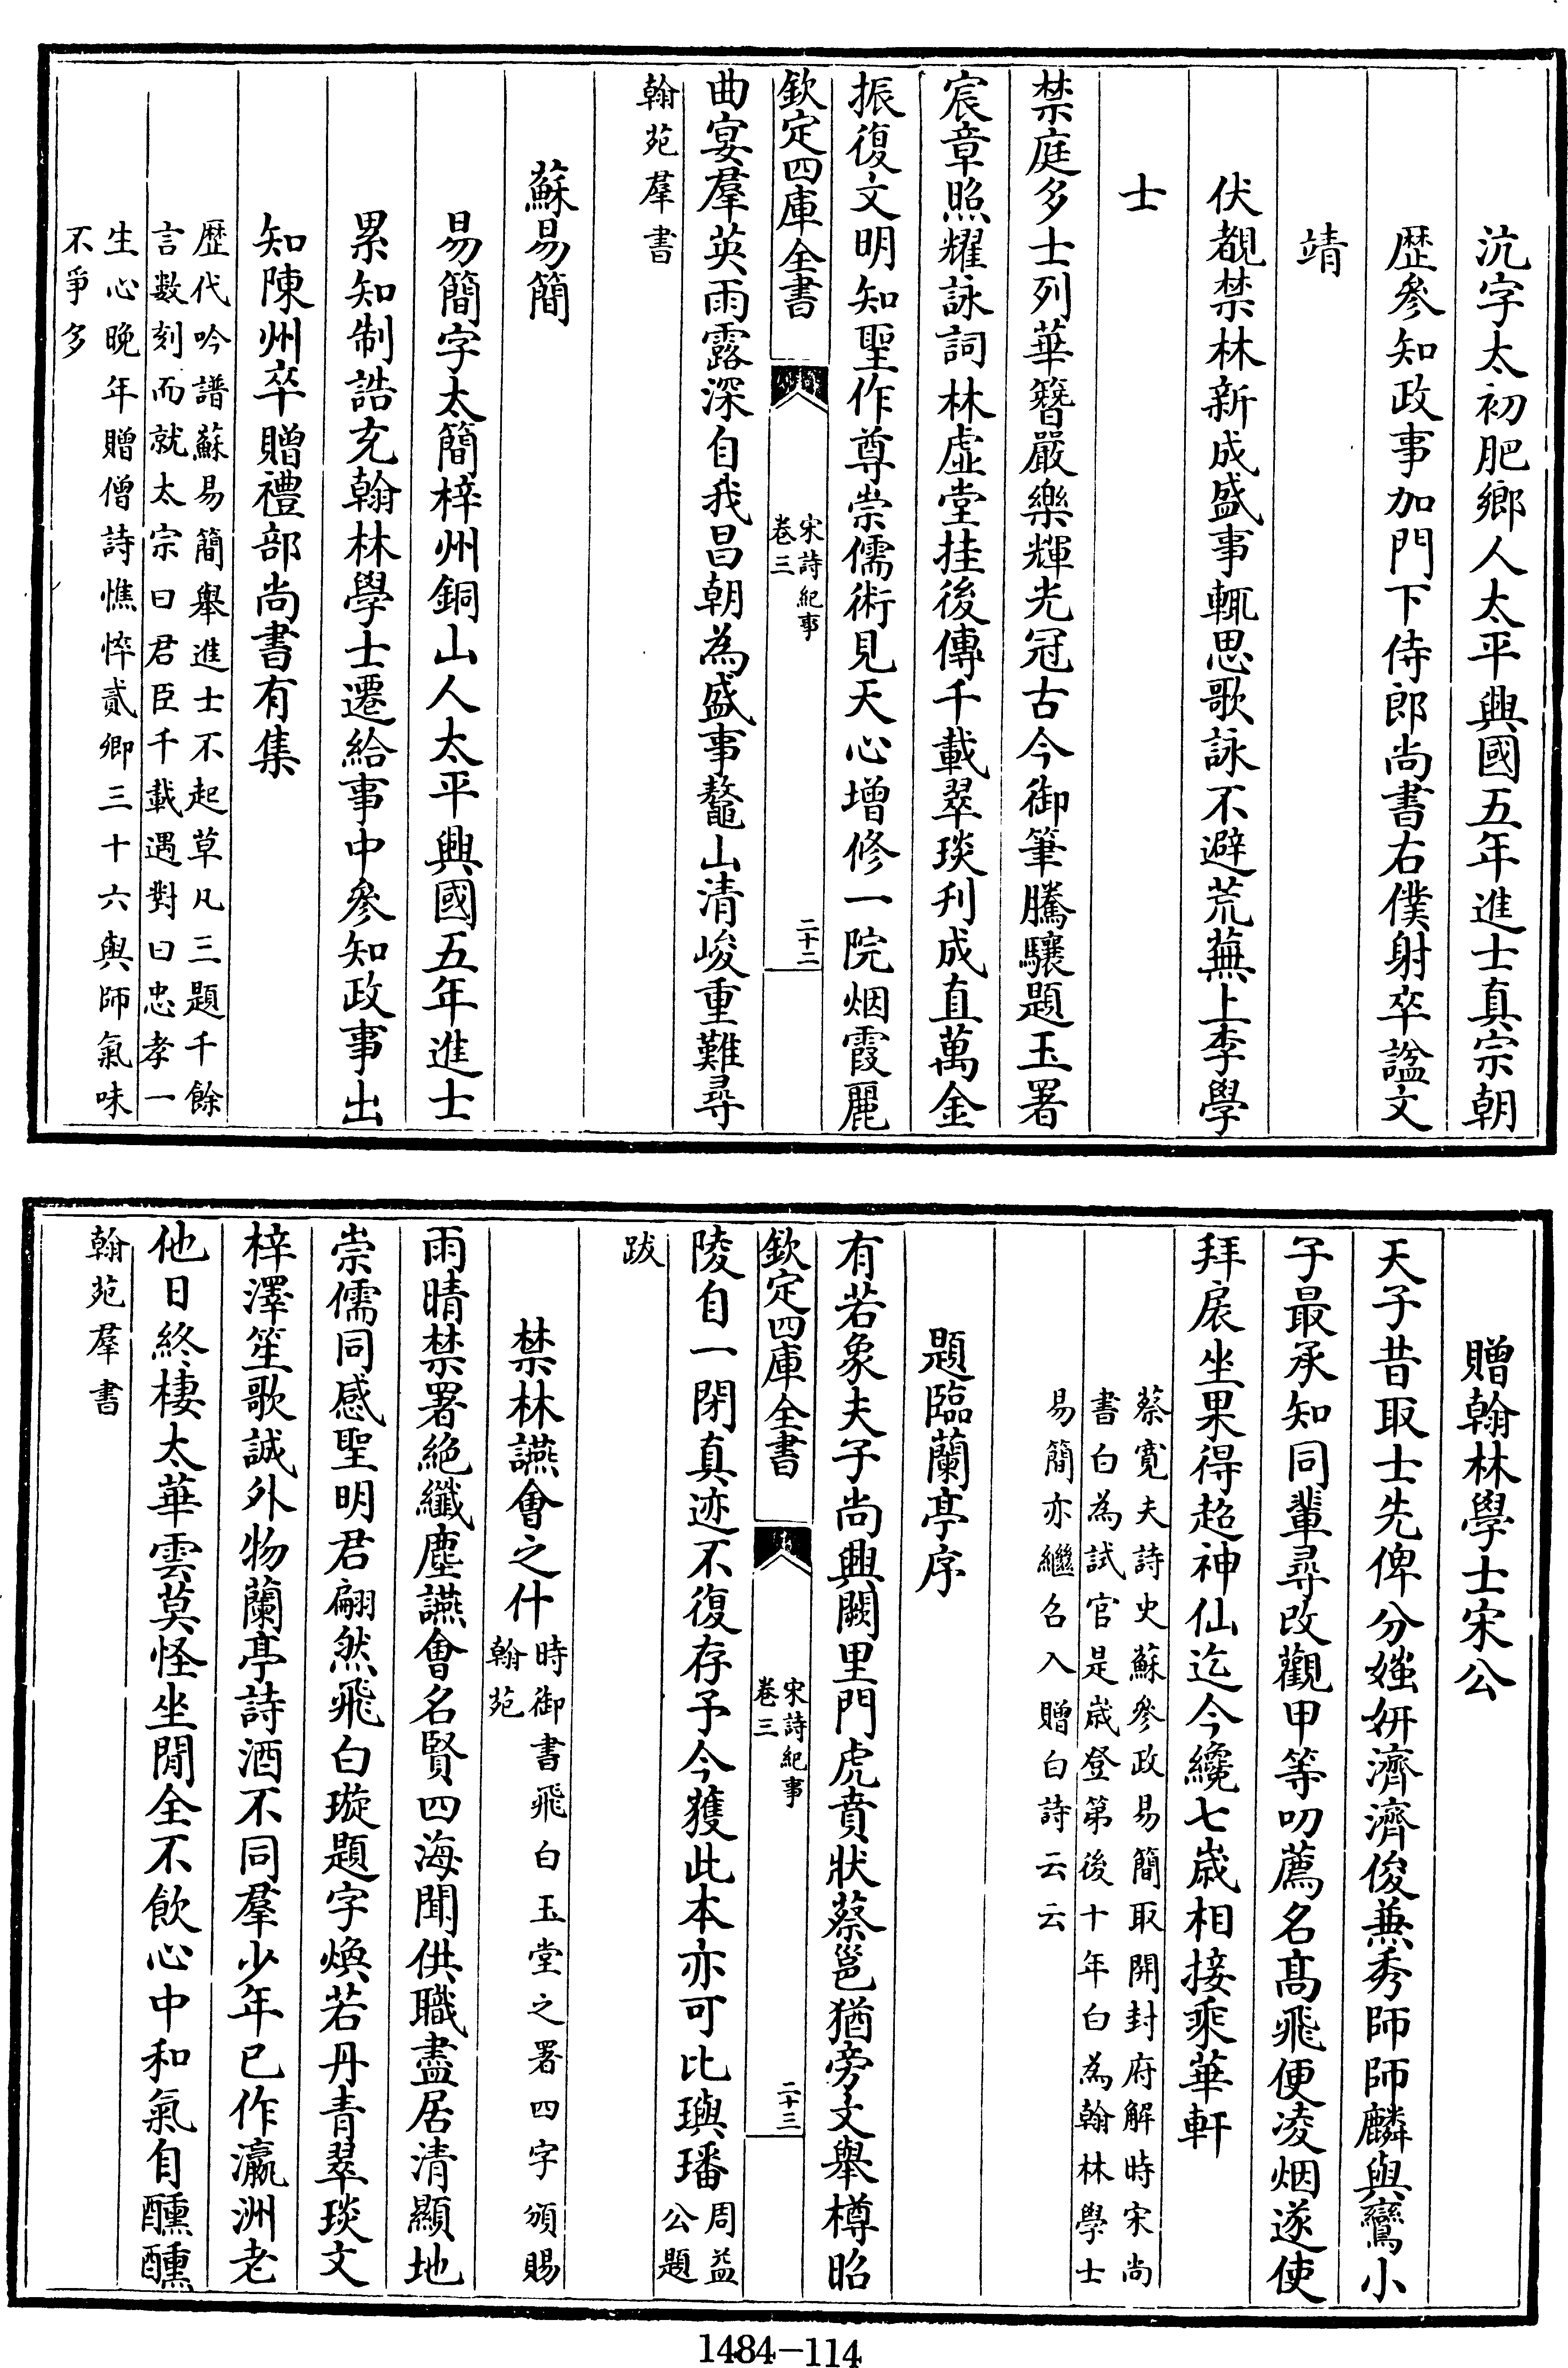 沆字太初肥鄉人太平興國五年進士真宗朝
歴參知政事加門下侍郎尚書右僕射卒諡文
靖
伏覩禁林新成盛事輒思歌詠不避荒蕪上李學
士
禁庭多士列華簪嚴樂輝光冠古今御筆騰驤題玉署
宸章照耀詠詞林虛堂挂後傳千載翠琰刋成直萬金
振復文明知聖作尊崇儒術見天心增修一院烟霞麗
欽定四庫全書
宋詩紀事
卷三
二十二
曲宴羣英雨露深自我昌朝為盛事鼇山清峻重難尋
翰苑羣書
蘇易簡
易簡字太簡梓州銅山人太平興國五年進士
累知制誥充翰林學士遷給事中參知政事出
知陳州卒贈禮部尚書有集
歴代吟譜蘇易簡舉進士不起草凡三題千餘
言數刻而就太宗曰君臣千載遇對曰忠孝一
生心晚年贈僧詩憔悴貳卿三十六與師氣味
不爭多
贈翰林學士宋公
天子昔取士先俾分媸妍濟濟俊兼秀師師麟與鸞小
子最承知同輩尋改觀甲等叨薦名髙飛便凌烟遂使
拜扆坐果得超神仙迄今纔七歳相接乘華軒
蔡寛夫詩史蘇參政易簡取開封府解時宋尚
書白為試官是歳登第後十年白為翰林學士
易簡亦繼召入贈白詩云云
題臨蘭亭序
有若象夫子尚興闕里門虎賁狀蔡邕猶旁文舉樽昭
欽定四庫全書
宋詩紀事
卷三
二十三
陵自一閉真迹不復存予今獲此本亦可比璵璠周益
公題
跋
禁林讌會之什時御書飛白玉堂之署四字頒賜
翰苑
雨晴禁署絶纖塵讌會名賢四海聞供職盡居清顯地
崇儒同感聖明君翩然飛白璇題字煥若丹青翠琰文
梓澤笙歌誠外物蘭亭詩酒不同羣少年已作瀛洲老
他日終棲太華雲莫怪坐間全不飲心中和氣自醺醺
翰苑羣書
1484-114